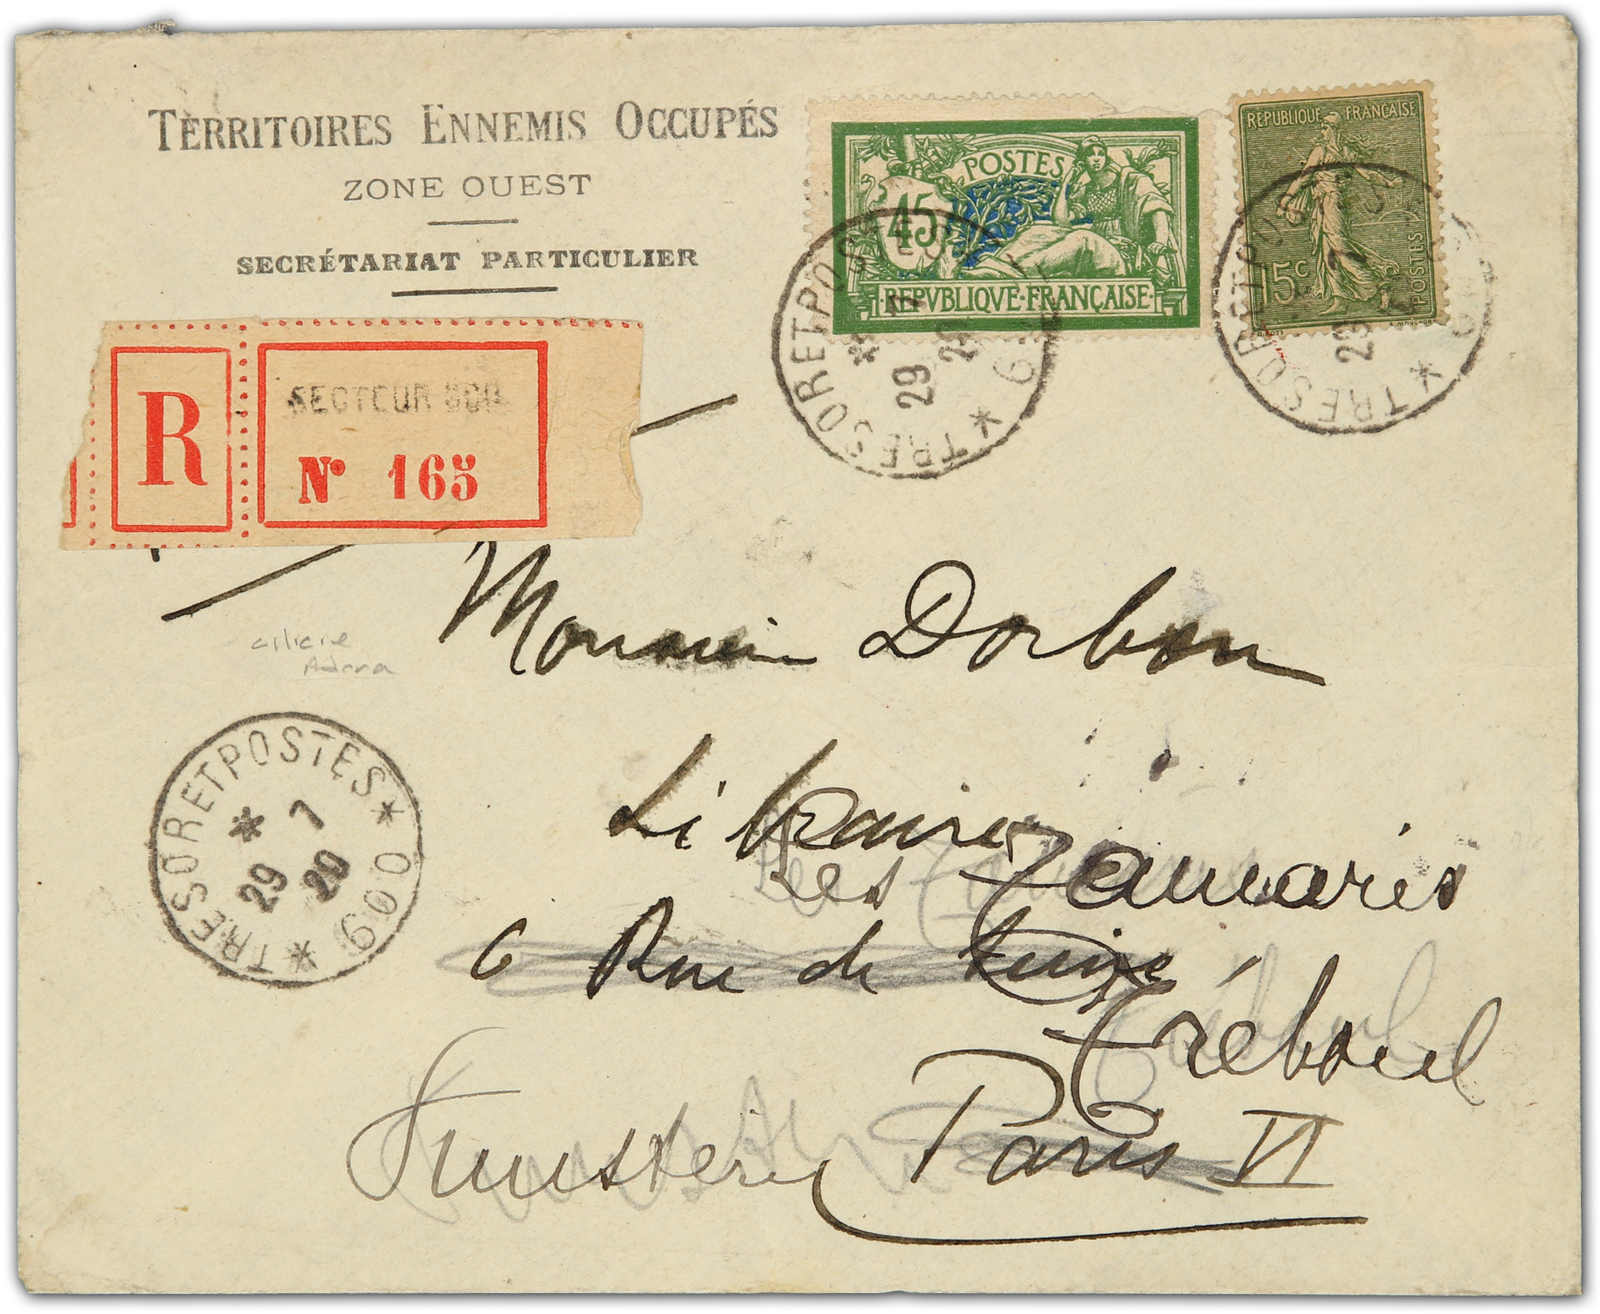 TERRITOIRES ENNEMIS OCCUPÉS
ZONE OUEST
SECRÉTARIAT PARTICULIER
POSTES
45
REPVBLIQVE·FRANÇAISE
REPUBLIQUE FRANÇAISE
15c
POSTES
TRESOR ET POSTES
29
TRESOR ET POSTES
R
SECTEUR
N° 165
Monsieur Dorbon
cilicie
Adana
Libraire
Les Tamaris
6 Rue de
Tréboul
Finistère
Paris VI
*TRESOR ET POSTES* 600
* 7
29 20